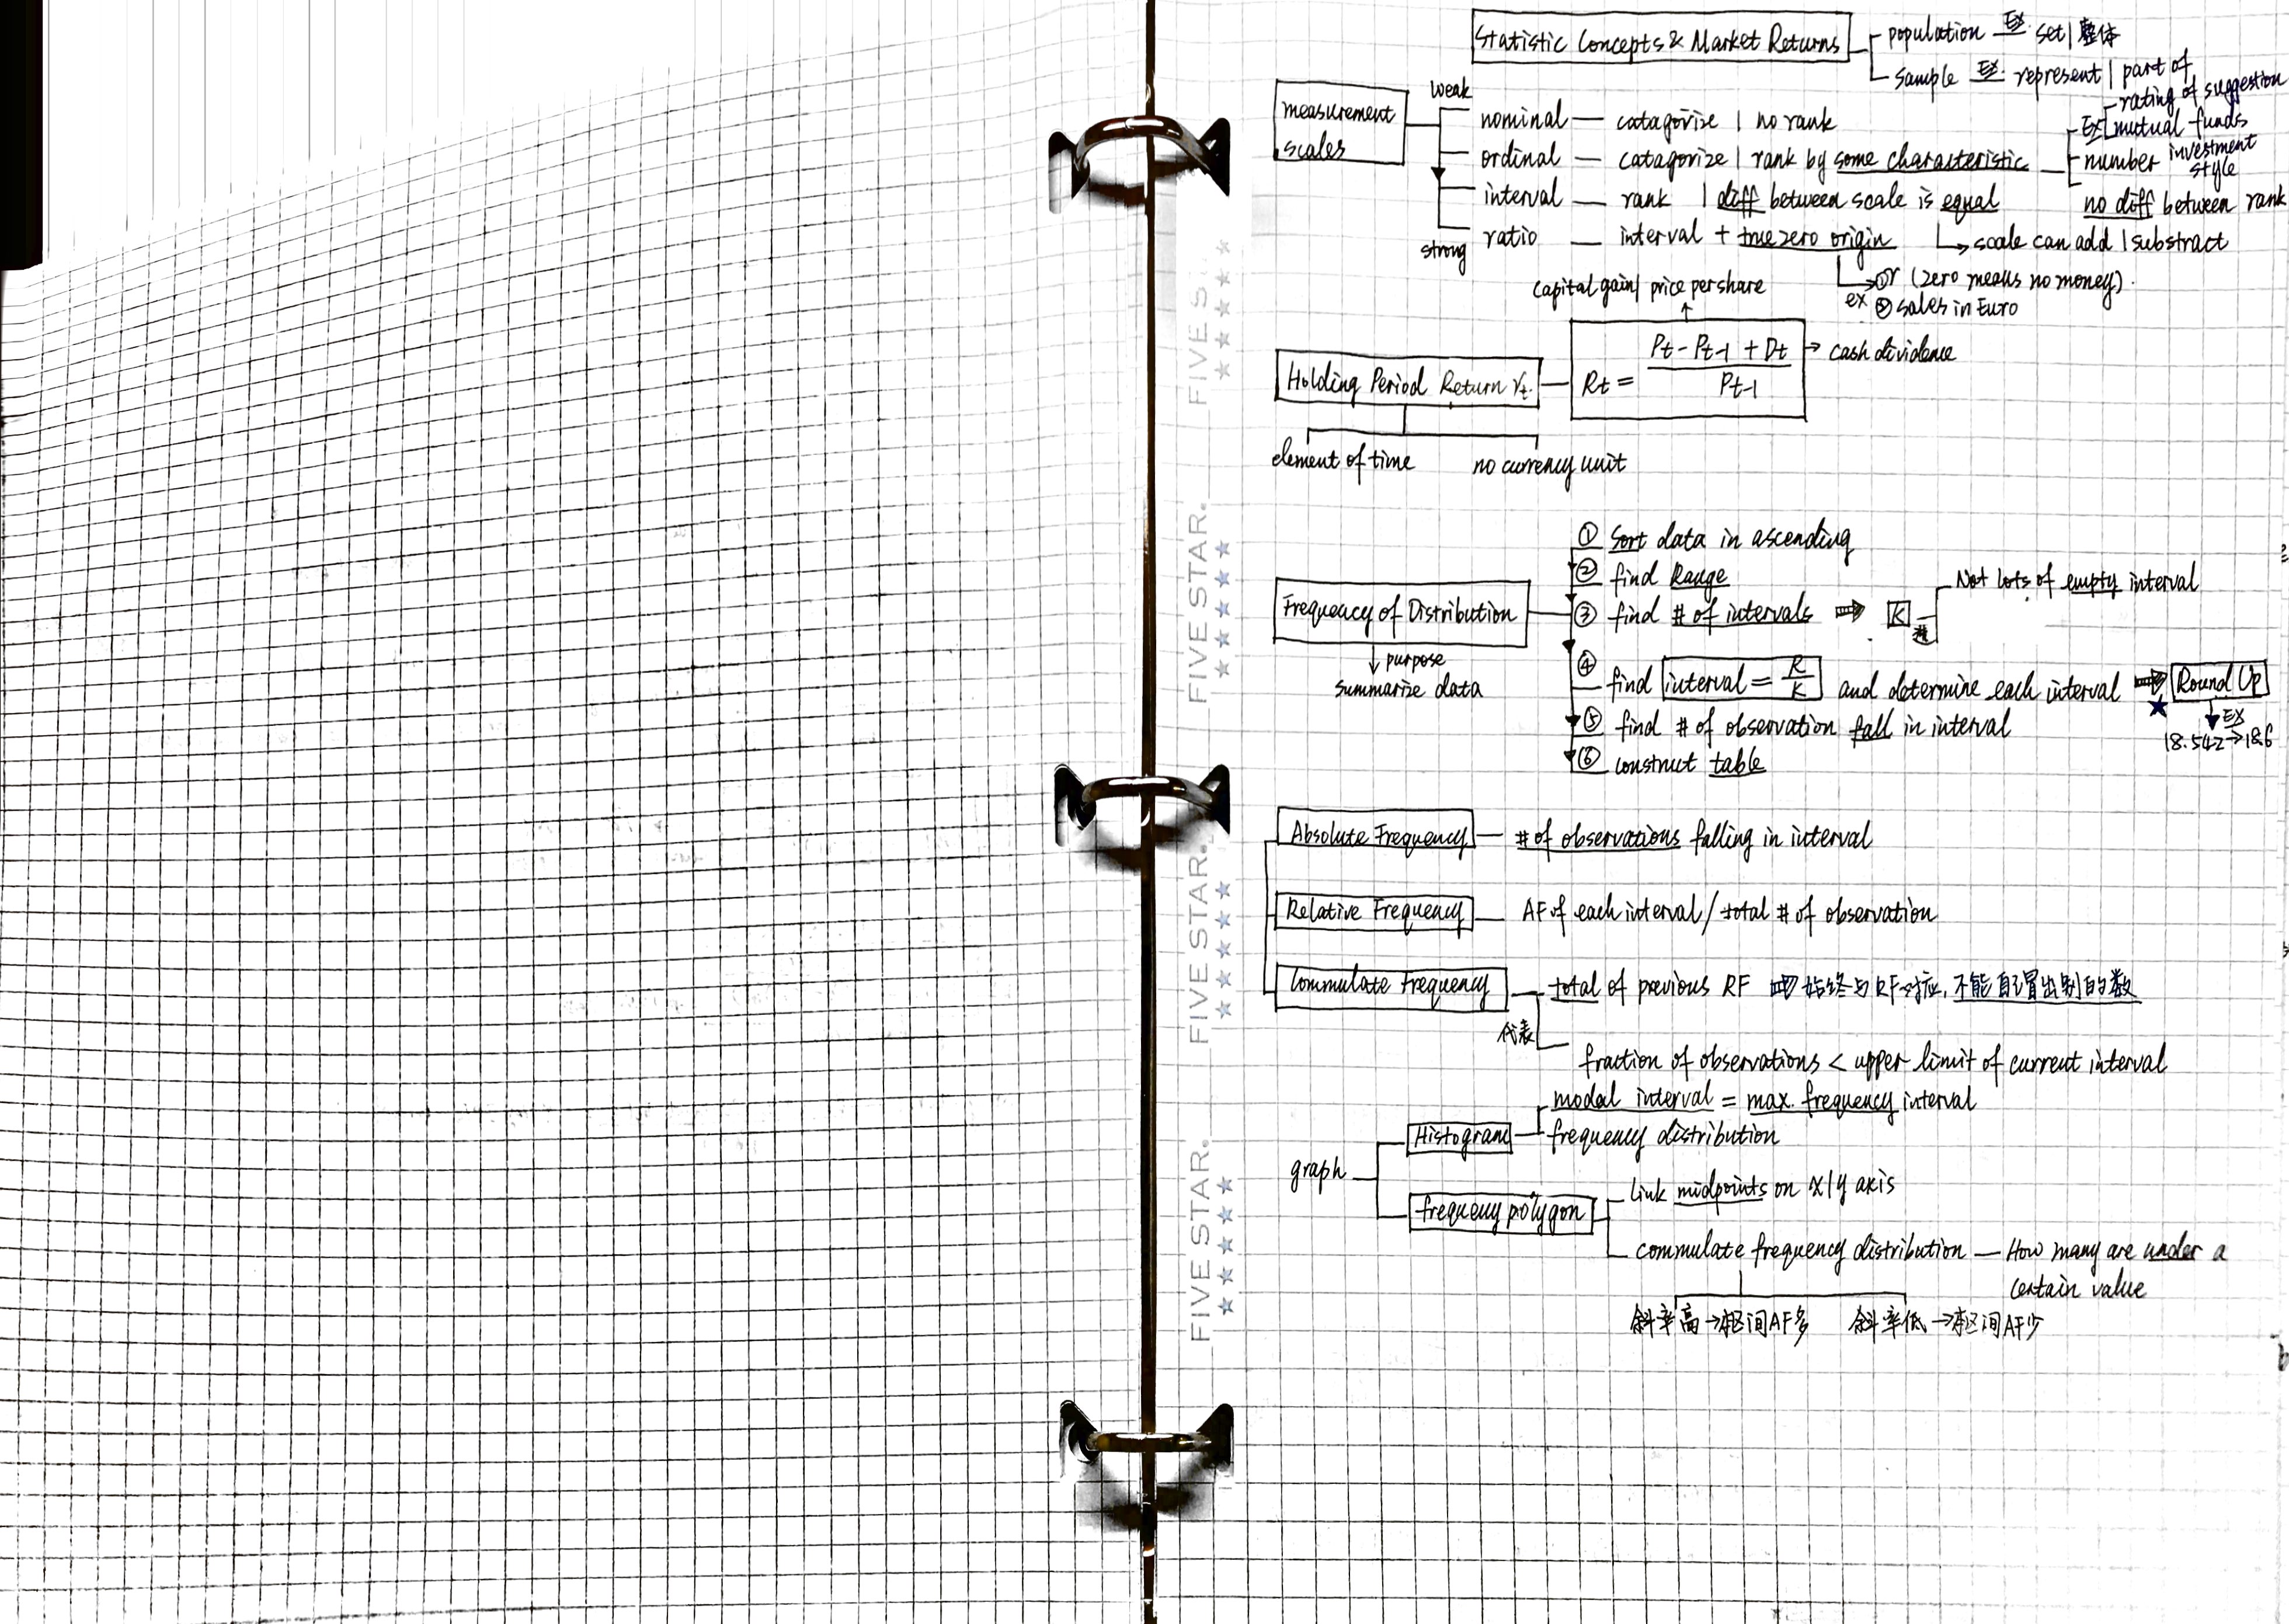 Statistic Concepts & Market Returns
population Ex set | 整体
sample Ex. represent | part of
measurement scales
weak
nominal — catagorize | no rank
ordinal — catagorize | rank by some characteristic
Ex rating of suggestion
mutual funds
number investment style
no diff between rank
interval — rank | diff between scale is equal
scale can add | substract
strong
ratio — interval + true zero origin
ex ① r (zero means no money).
② sales in Euro
capital gain | price per share
Holding Period Return rt.
Rt = (Pt - Pt-1 + Dt) / Pt-1
→ cash dividence
element of time
no currency unit
Frequency of Distribution
↓ purpose
summarize data
① Sort data in ascending
② find Range
③ find # of intervals ⇒ K
Not lots of empty interval
④ find interval = R/K and determine each interval ⇒ Round Up
★
Ex
18.542→18.6
⑤ find # of observation fall in interval
⑥ construct table
Absolute Frequency — # of observations falling in interval
Relative Frequency — AF of each interval / total # of observation
Commulate Frequency — total of previous RF ⇒ 始终与RF对应,不能自己冒出别的数
代表
fraction of observations < upper limit of current interval
graph
Histogram
modal interval = max. frequency interval
frequency distribution
frequency polygon
link midpoints on x/y axis
commulate frequency distribution — How many are under a certain value
斜率高→区间AF多
斜率低→区间AF少
FIVE STAR.
FIVE STAR.
FIVE STAR.
FIVE STAR.